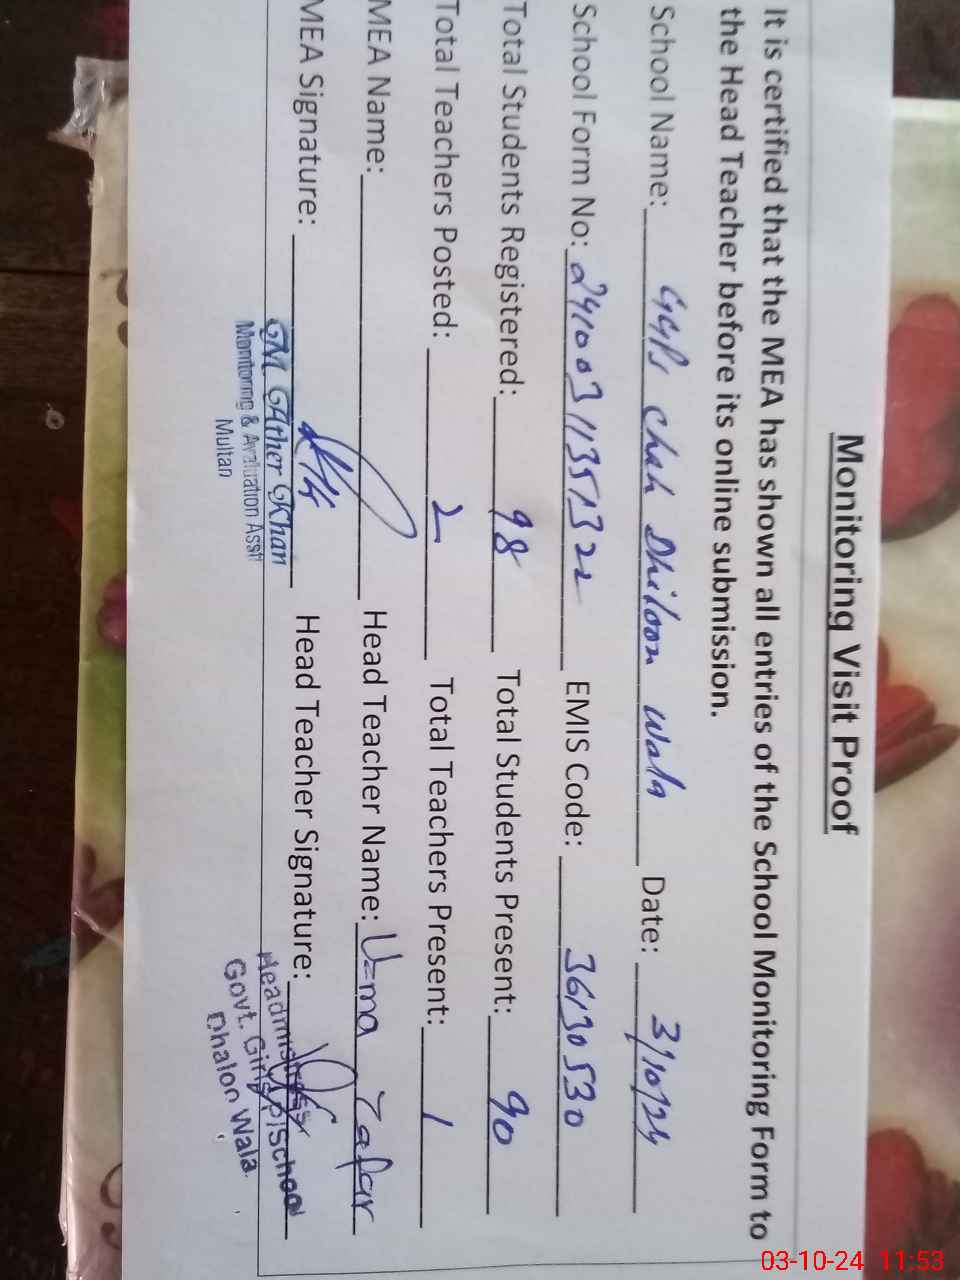 Monitoring Visit Proof
It is certified that the MEA has shown all entries of the School Monitoring Form to
the Head Teacher before its online submission.
School Name: GGPS Chah Dhiloon wala Date: 3/10/24
School Form No: 24100311351322 EMIS Code: 36130530
Total Students Registered: 98 Total Students Present: 90
Total Teachers Posted: 2 Total Teachers Present: 1
MEA Name: Head Teacher Name: Uzma Zafar
MEA Signature: Head Teacher Signature:
GM GAther GKhan
Monitoring & Avaluation Asst
Multan
Headmistress
Govt. Girls P/School
Dhalon Wala
03-10-24 11:53